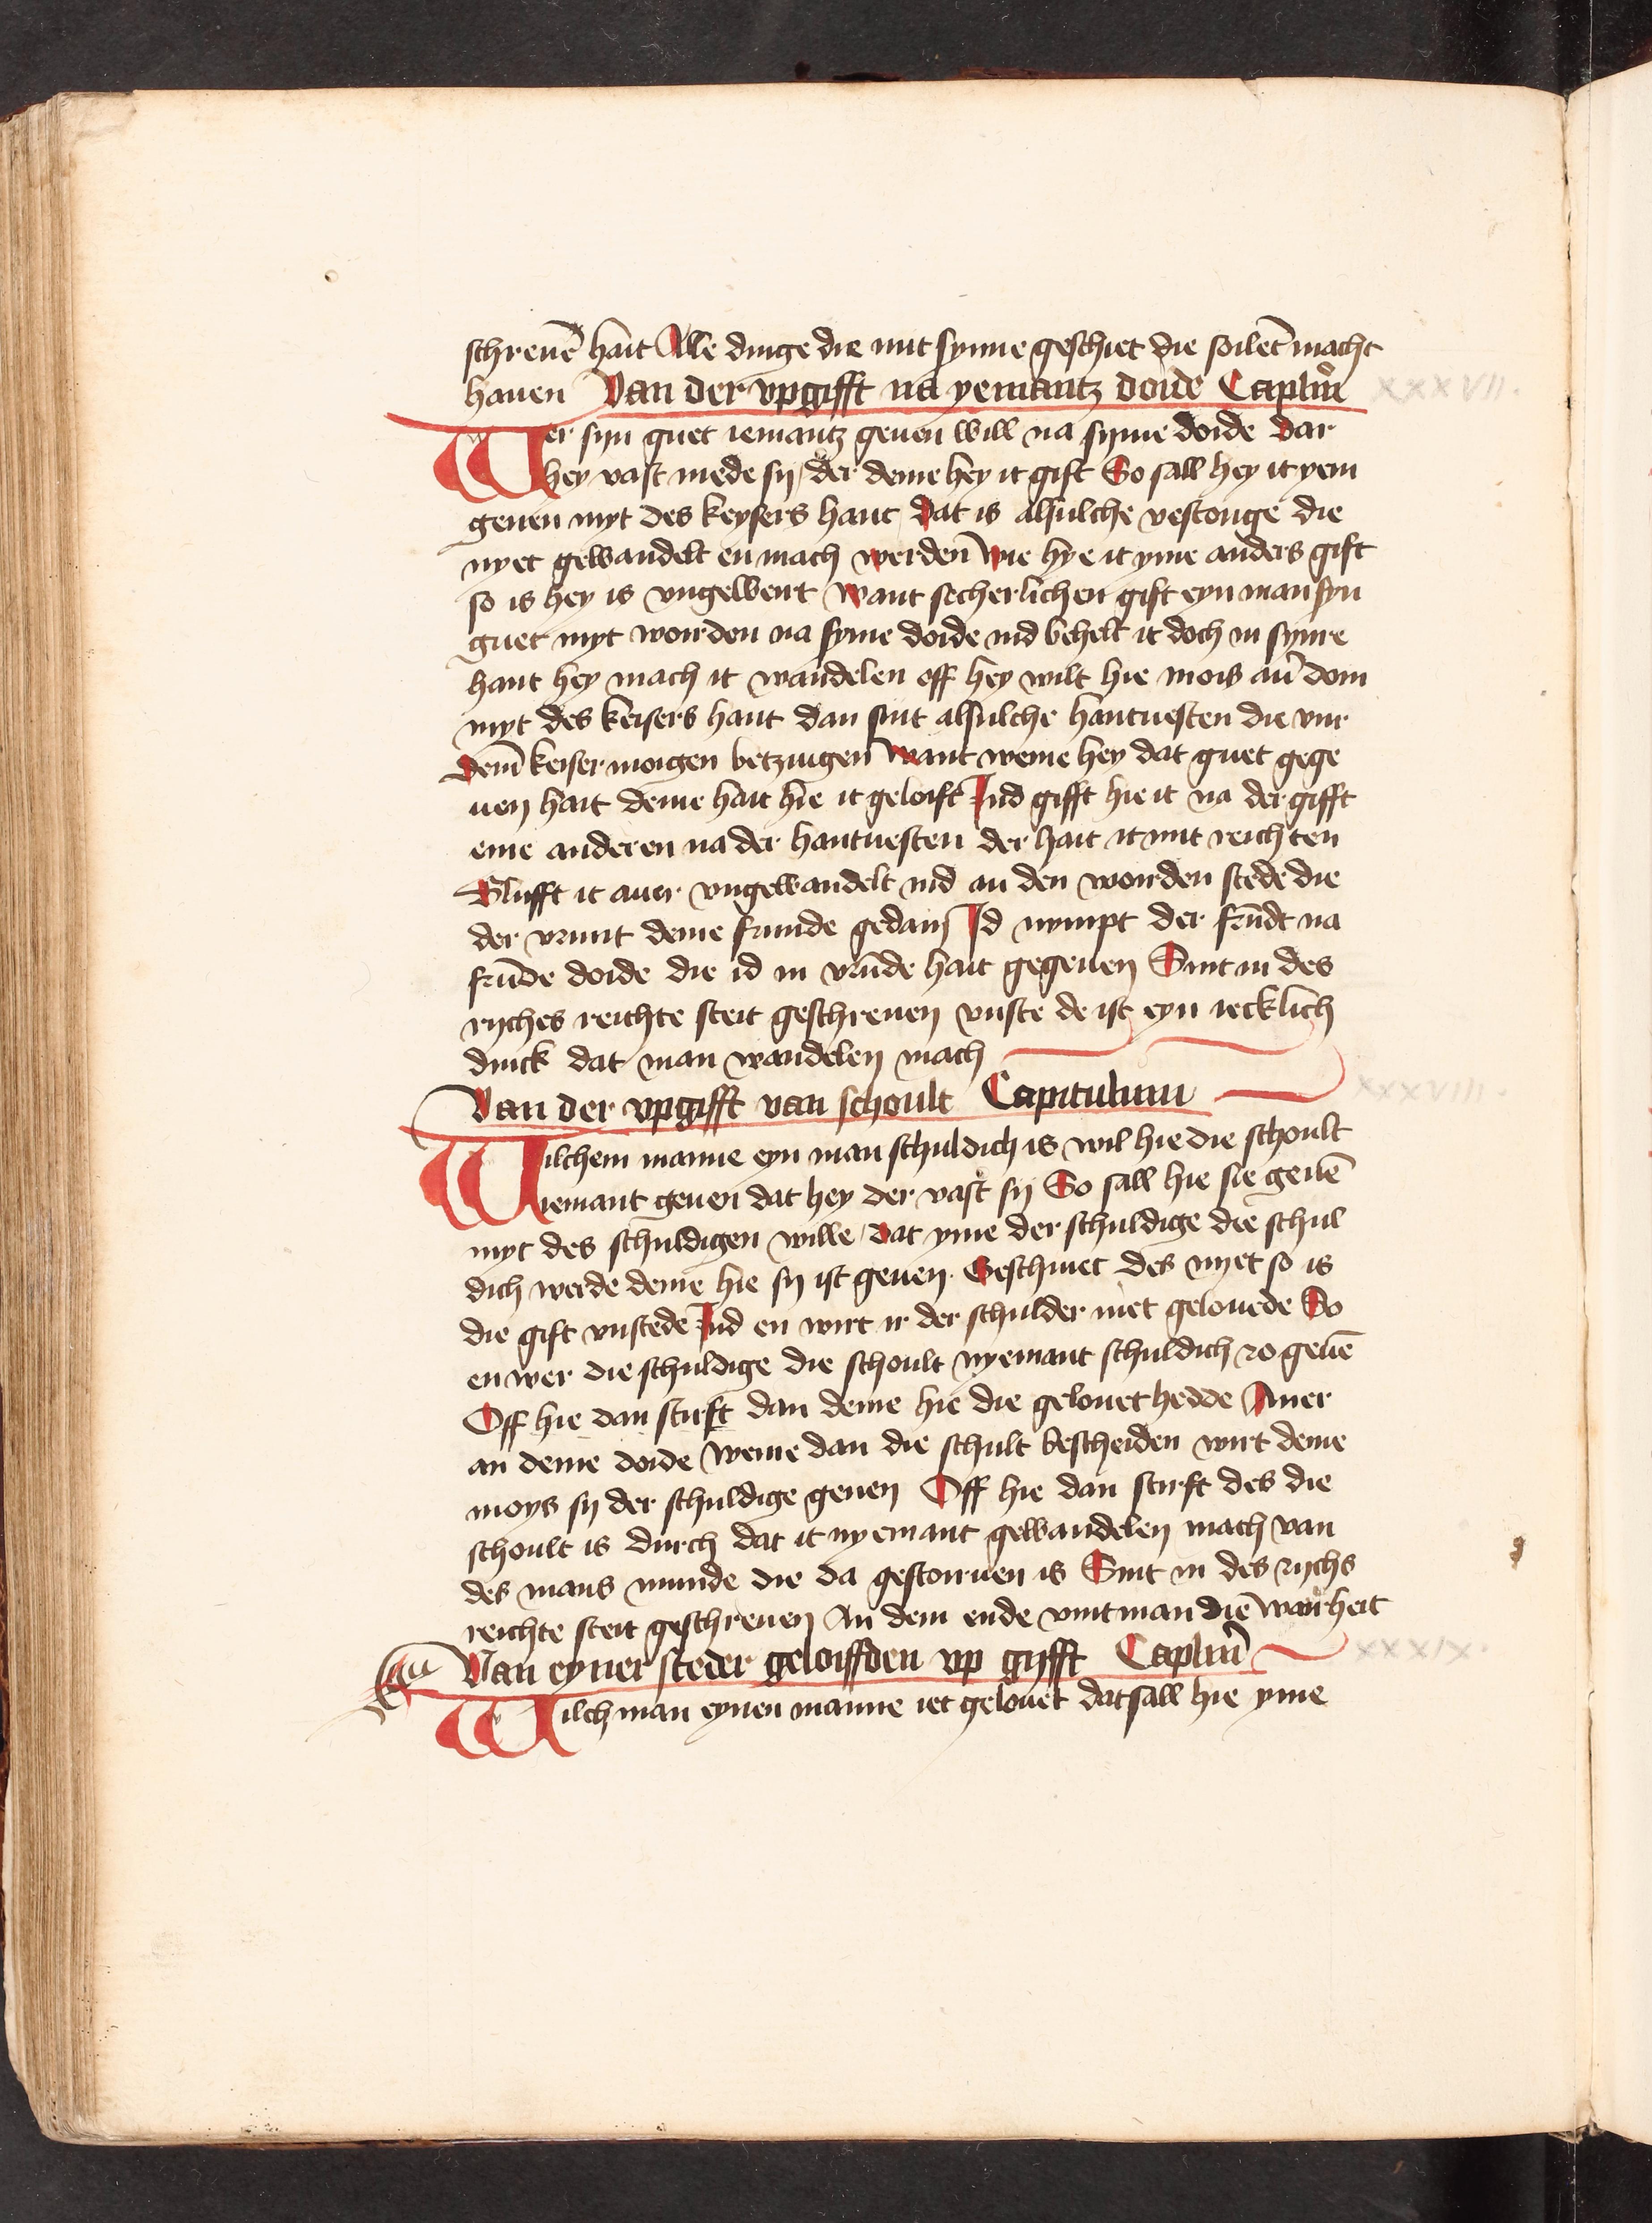 schreuē hait Alle dinge die mit synne geschiet die soilēt macht
hauen Van der vpgifft na yemantz doide Caplm̄ XXXVII.
Wer syn guet iemantz geuen will na syme doide dar
hey vast mede sij der deme hey it gift So sall hey it yem
geuen myt des keysers hant dat is alsulche vestonge die
nyet gewandelt en mach werden wie hye it yme anders gift
so is hey is vngelwert want secherlichen gift eyn man syn
guet myt worden na syme doide ind behelt it doch in synre
hant hey mach it wandelen off hey wilt hie mois au dom
myt des keisers hant dan sint alsulche hantuesten die vur
dem̄ keiser moigen betzuigen want weme hey dat guet gege
uen hait deme hait hie it geloift Ind gifft hie it na der gifft
eme anderen na der hantuesten der hait it mit reichten
Blijfft it auer vngewandelt ind an den worden stede die
der vrunt deme frunde gedain Id nympt der frūdt na
frūde doide die id in vrūde hait gegeuen Sint in des
ryches reichte steit geschreuen vnste de ist eyn iecklich
dinck dat man wandelen mach
Van der vpgifft van schoult Capitulum XXXVIII.
Wilchem manne eyn man schuldich is wil hie die schoult
iemant geuen dat hey der vast sij So sall hie sie geuē
myt des schuldigen wille dat yme der schuldige die schul
dich werde deme hie sij ist geuen. Geschuiet des nyet so is
die gift vnstede Ind en wirt ir der schulder niet gelouede So
en wer die schuldige die schoult nyemant schuldich zo geuē
Off hie dan stirft dan deme hie die gelouet hedde Auer
an deme doide weme dan die schult bescheiden wirt deme
moys sij der schuldige geuen Off hie dan stirft des die
schoult is durch dat it nyemant gewandelen mach van
des mans munde die da gestoruen is Sint in des rychs
reichte steit geschreuen An dem ende vint man die wairheit
Van eyner steder geloiffden vp gyfft Caplm̄ XXXIX.
Wilch man eynen manne iet gelouet dat sall hie yme